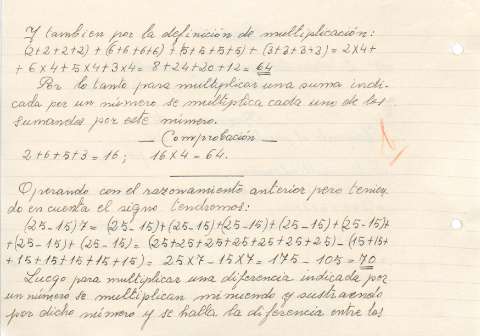 Y tambien por la definición de multiplicación:
(2+2+2+2) + (6+6+6+6) + (5+5+5+5) + (3+3+3+3) = 2×4+
+ 6×4+5×4+3×4= 8+24+20+12= 64
Por lo tanto para multiplicar una suma indi-
cada por un número se multiplica cada uno de los
sumandos por este número.
— Comprobación —
2+6+5+3=16; 16×4=64.
Operando con el razonamiento anterior pero tenien-
do en cuenta el signo tendremos:
(25-15)7= (25-15)+(25-15)+(25-15)+(25-15)+(25-15)+
+(25-15)+ (25-15)= (25+25+25+25+25+25+25)-(15+15+
+15+15+15+15+15)= 25×7-15×7= 175-105=70
Luego para multiplicar una diferencia indicada por
un número se multiplican minuendo y sustraendo
por dicho número y se halla la diferencia entre los